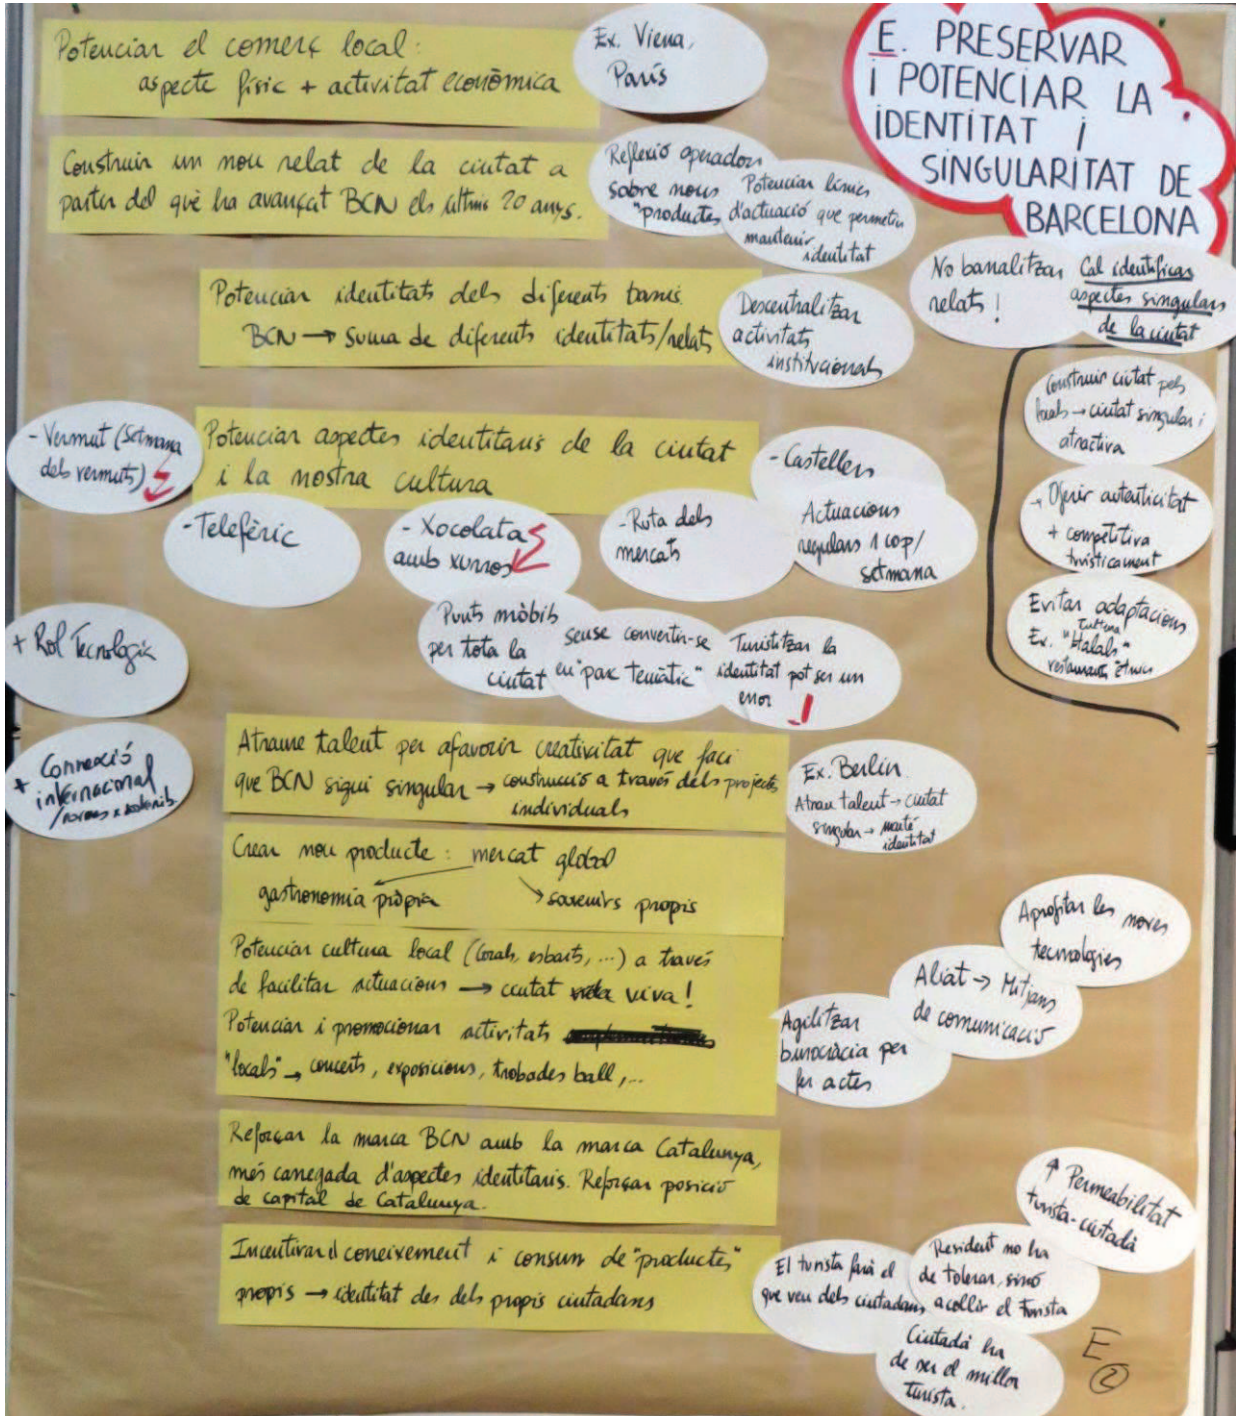 E. PRESERVAR
I POTENCIAR LA
IDENTITAT I
SINGULARITAT DE
BARCELONA
Potenciar el comerç local:
aspecte físic + activitat econòmica
Ex. Viena,
París
Construir un nou relat de la ciutat a
partir del què ha avançat BCN els últims 20 anys.
Reflexió operadors
sobre nous
"productes"
Potenciar línies
d'actuació que permetin
mantenir
identitat
No banalitzar
relats!
Cal identificar
aspectes singulars
de la ciutat
Potenciar identitats dels diferents barris.
BCN → suma de diferents identitats/relats
Descentralitzar
activitats
institucionals
Construir ciutat pels
locals → ciutat singular i
atractiva
→ Oferir autenticitat
+ competitiva
turísticament
Evitar adaptacions
cultura
Ex. "Halals"
restaurants ètnics
- Vermut (Setmana
dels vermuts)
Potenciar aspectes identitaris de la ciutat
i la nostra cultura
- Castellers
Actuacions
regulars 1 cop/
setmana
- Telefèric
- Xocolata
amb xurros
- Ruta dels
mercats
Punts mòbils
per tota la
ciutat
sense convertir-se
en "parc temàtic"
Turistitzar la
identitat pot ser un
error
!
+ Rol Tecnologia
+ Connexió
internacional
Atraure talent per afavorir creativitat que faci
que BCN sigui singular → construcció a través dels projectes
individuals
Ex. Berlín
Atrau talent → ciutat
singular → manté
identitat
Crear nou producte: mercat global
gastronomia pròpia
souvenirs propis
Potenciar cultura local (corals, esbarts, ...) a través
de facilitar actuacions → ciutat viva!
Potenciar i promocionar activitats
"locals" → concerts, exposicions, trobades ball, ...
Agilitzar
burocràcia per
fer actes
Aliat → Mitjans
de comunicació
Aprofitar les noves
tecnologies
Reforçar la marca BCN amb la marca Catalunya,
més carregada d'aspectes identitaris. Reforçar posició
de capital de Catalunya.
Incentivar el coneixement i consum de "productes"
propis → identitat des dels propis ciutadans
El turista farà el
que veu dels ciutadans
Resident no ha
de tolerar, sinó
acollir el turista
↑ Permeabilitat
turista-ciutadà
Ciutadà ha
de ser el millor
turista.
E
2